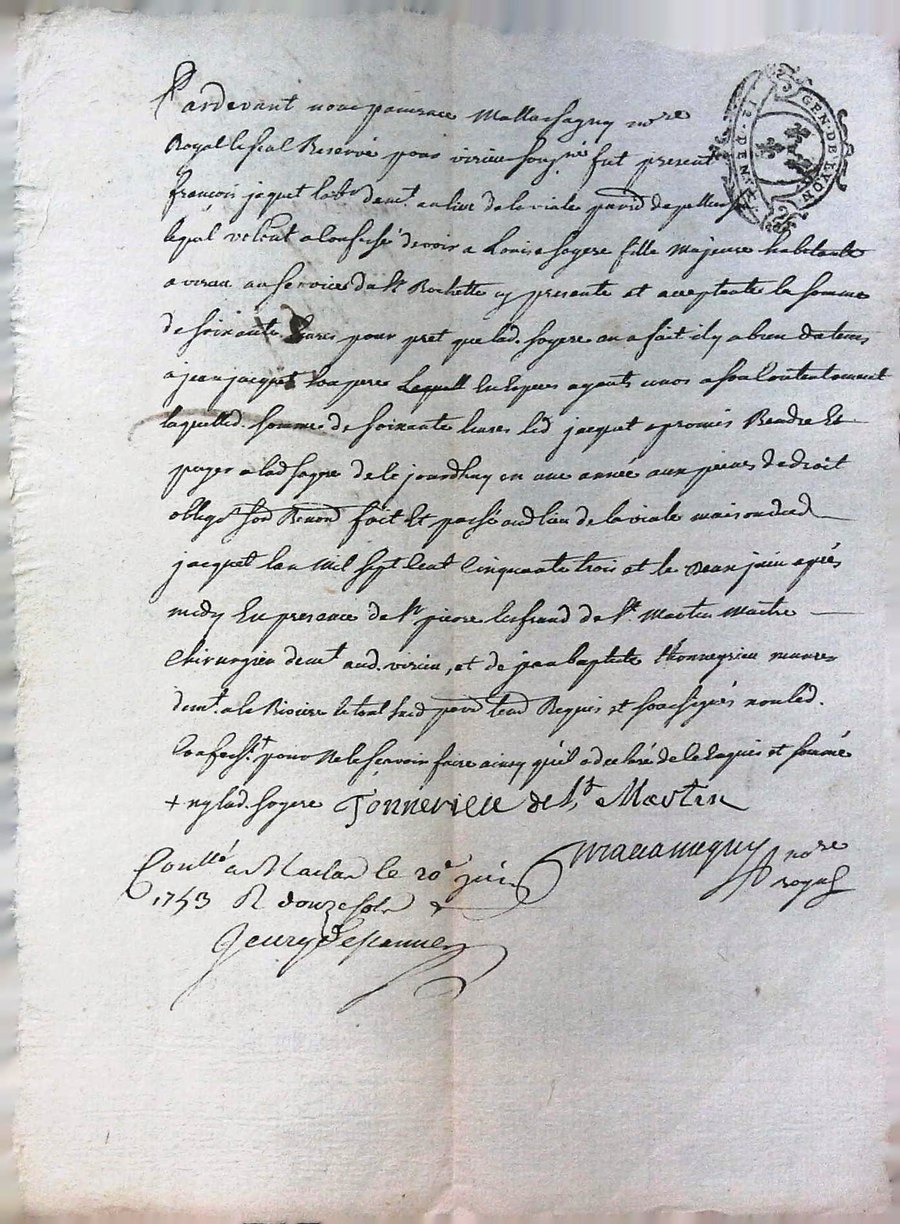 GEN·DE·LYON
12·DEN
Pardevant nous Mallassagny no.re
Royal le scel Reservé pour virieu sousg.né fut present
françois jaquet lab.r dem.t au lieu de la viale parr.d de pellus
lequel a Confessé devoir a Louise sogere fille Majeure habitante
a virieu au service de S.r Rochette cy presente et acceptante la somme
De soixante livres pour pret que lad. sogere en a fait il y a bien du tems
a jean jacquet son pere Lequell En Espéces ayants cours a son Contentement
laquelled. somme de soixante livres led jacquet a promis Rendre Et
payer a lad sogere de ce jourdhuy en une année aux peines de droit
oblig.s sod Renond fait Et passé aud lieu de la viale maison dud
jacquet Lan Mil sept Cent Cinquante trois et le juin après
midy En presence de S.r pierre de S.t Martin Maitre
Chirurgien dem.t aud. virieu, et de jean baptiste thonnerieu
dem.t a la Riviere Requis et soussignés non led.
Confess.t pour Ne le scavoir faire ainsy qu'il a declaré de ce Enquis et sommé
+ ny lad. sogere Tonnerieu de S.t Martin
Mallassagny no.re
royal
Conllé a Maclas le 20e juin
1753 R douze sols